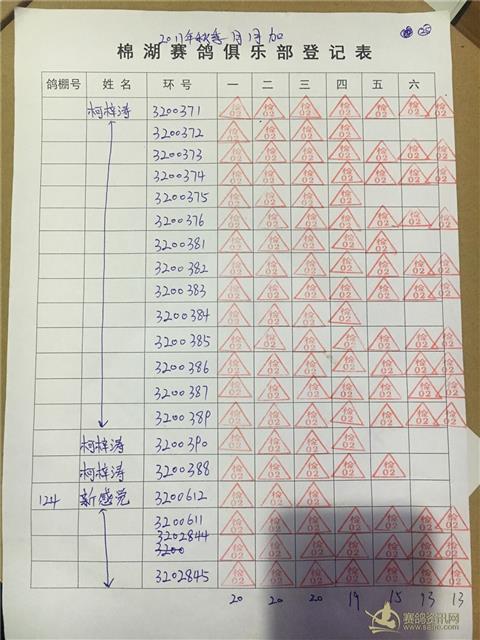 2017年秋季 月1日加
25
棉湖赛鸽俱乐部登记表
鸽棚号 姓名 环号 一 二 三 四 五 六
柯梓涛 3200371 检02 检02 检02 检02 检02 检02 检02
3200372 检02 检02 检02 检02
3200373 检02 检02 检02 检02 检02 检02 检02
3200374 检02 检02 检02 检02 检02 检02 检02
3200375 检02 检02 检02 检02
3200376 检02 检02 检02 检02 检02 检02 检02
3200381 检02 检02 检02 检02 检02
3200382 检02 检02 检02 检02 检02 检02 检02
3200383 检02 检02 检02 检02 检02 检02 检02
3200384 检02 检02 检02 检02
3200385 检02 检02 检02 检02 检02 检02 检02
3200386 检02 检02 检02 检02 检02 检02 检02
3200387 检02 检02 检02 检02 检02 检02 检02
3200389 检02 检02 检02 检02 检02 检02 检02
柯梓涛 3200390 检02 检02 检02 检02
柯梓涛 3200388 检02 检02 检02 检02 检02
124 新感觉 3200612 检02 检02 检02
3200611 检02 检02 检02 检02 检02 检02 检02
3202844 检02 检02 检02 检02 检02 检02 检02
3200
3202845 检02 检02 检02 检02 检02 检02 检02
20 20 20 19 15 13 13
赛鸽资讯网